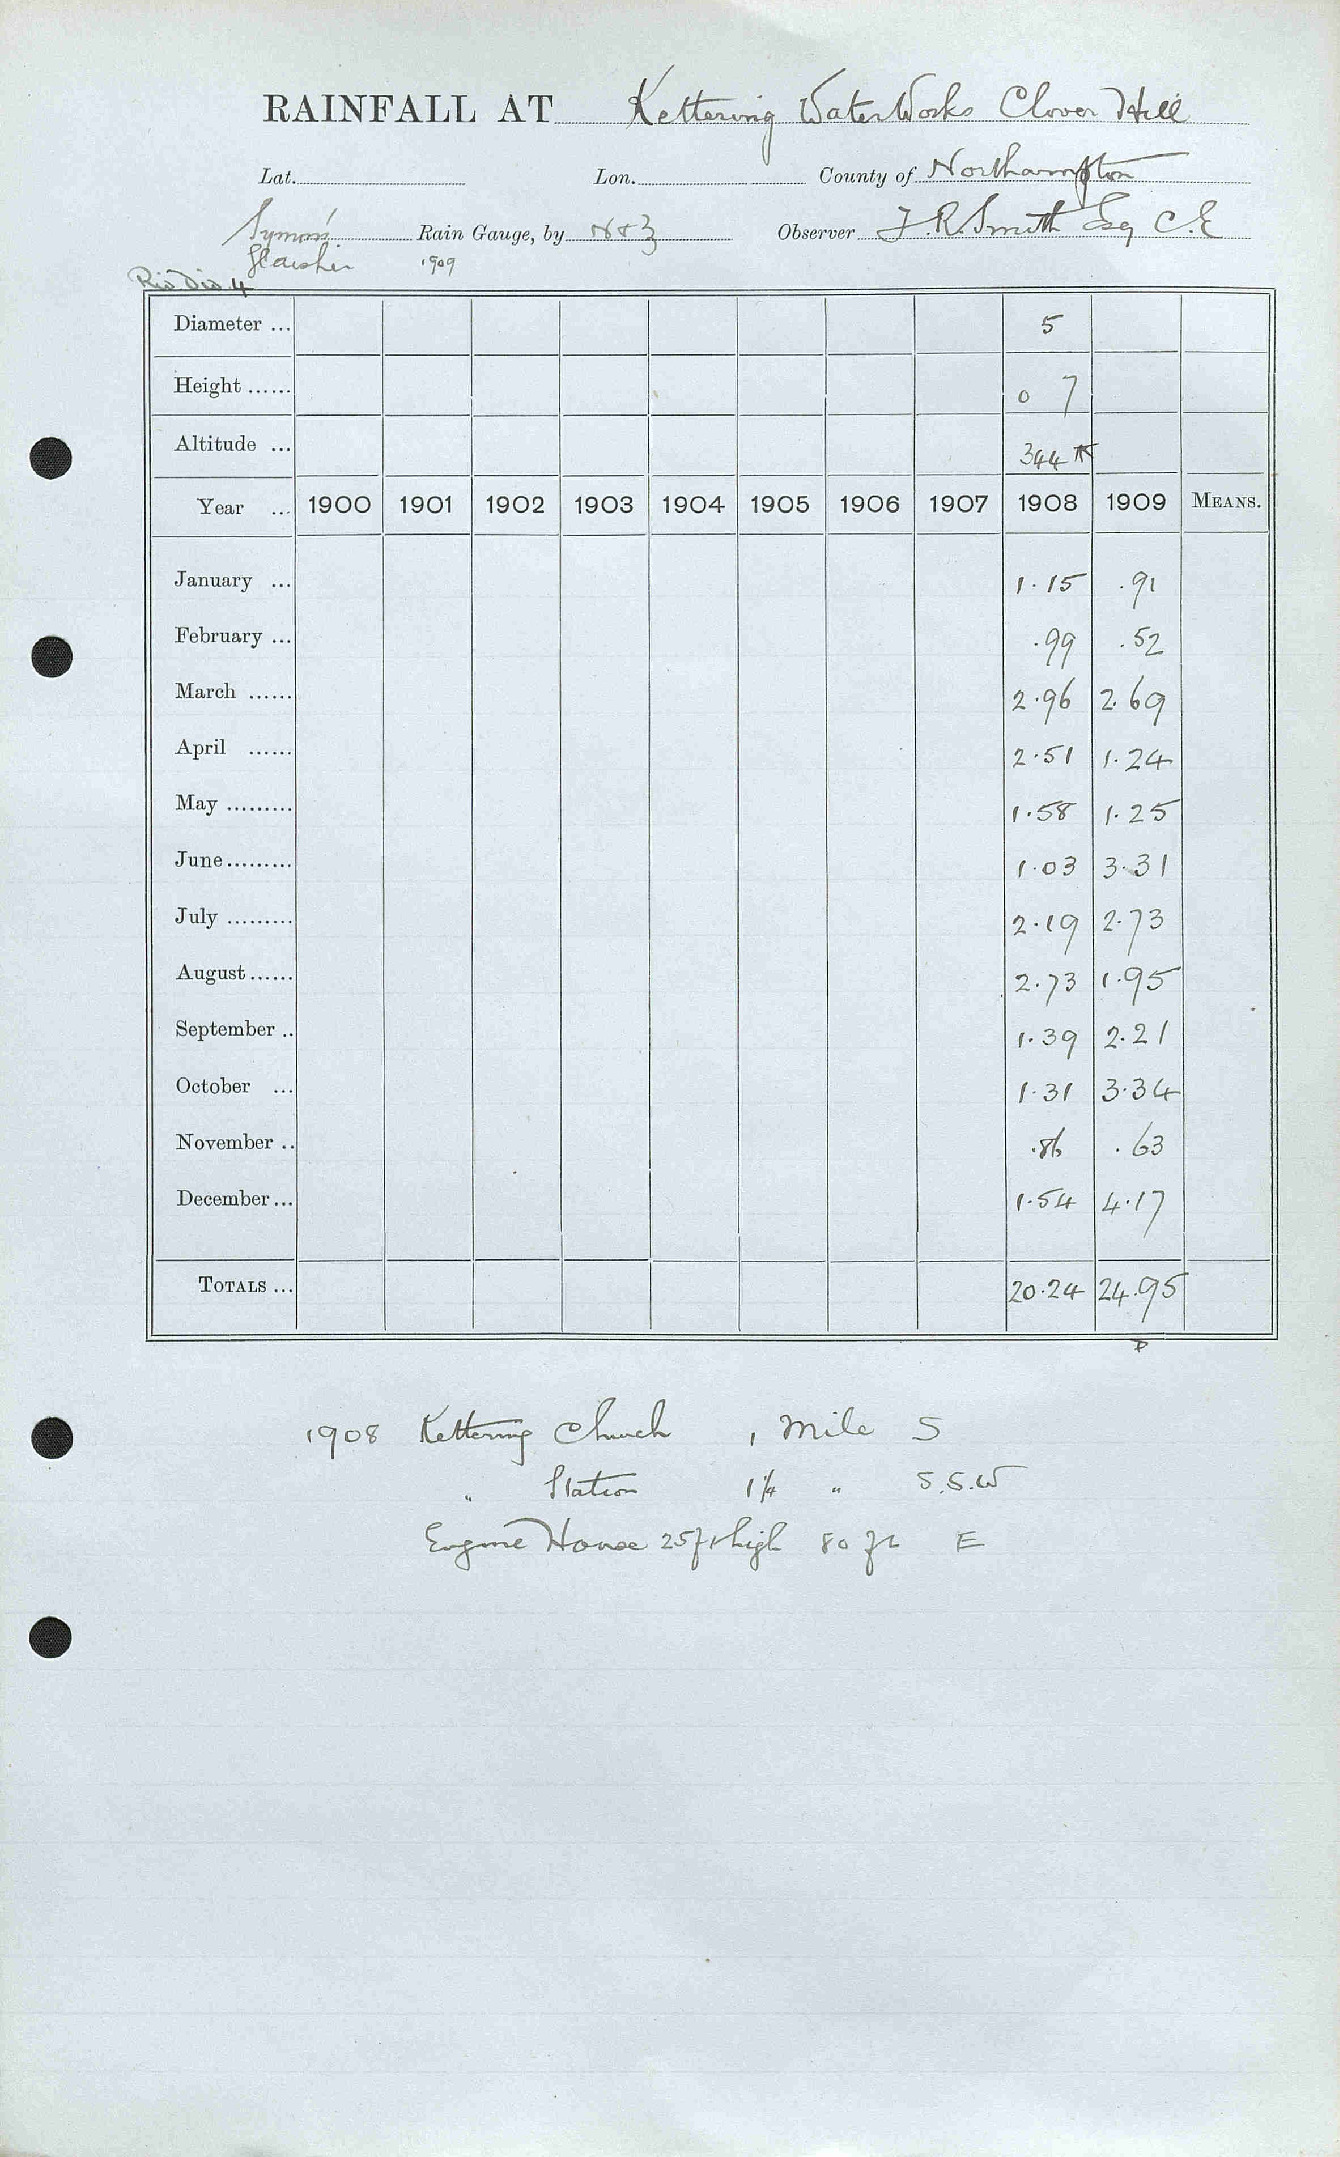 RAINFALL AT Kettering Water Works Clover Hill
Lat. Lon. County of Northampton
Symons' Rain Gauge, by N & Z Observer J. R. Smith Esq C.E
Glaisher 1909
Riv Div 4
Diameter ... 5
Height ...... 0 7
Altitude ... 344
Year ... 1900 1901 1902 1903 1904 1905 1906 1907 1908 1909 MEANS.
January ... 1.15 .91
February ... .99 .52
March ...... 2.96 2.69
April ...... 2.51 1.24
May ......... 1.58 1.25
June......... 1.03 3.31
July ......... 2.19 2.73
August...... 2.73 1.95
September .. 1.39 2.21
October ... 1.31 3.34
November .. .86 .63
December... 1.54 4.17
TOTALS ... 20.24 24.95
1908 Kettering Church 1 mile S
" Station 1 1/4 " S.S.W
Engine House 25 ft high 80 ft E